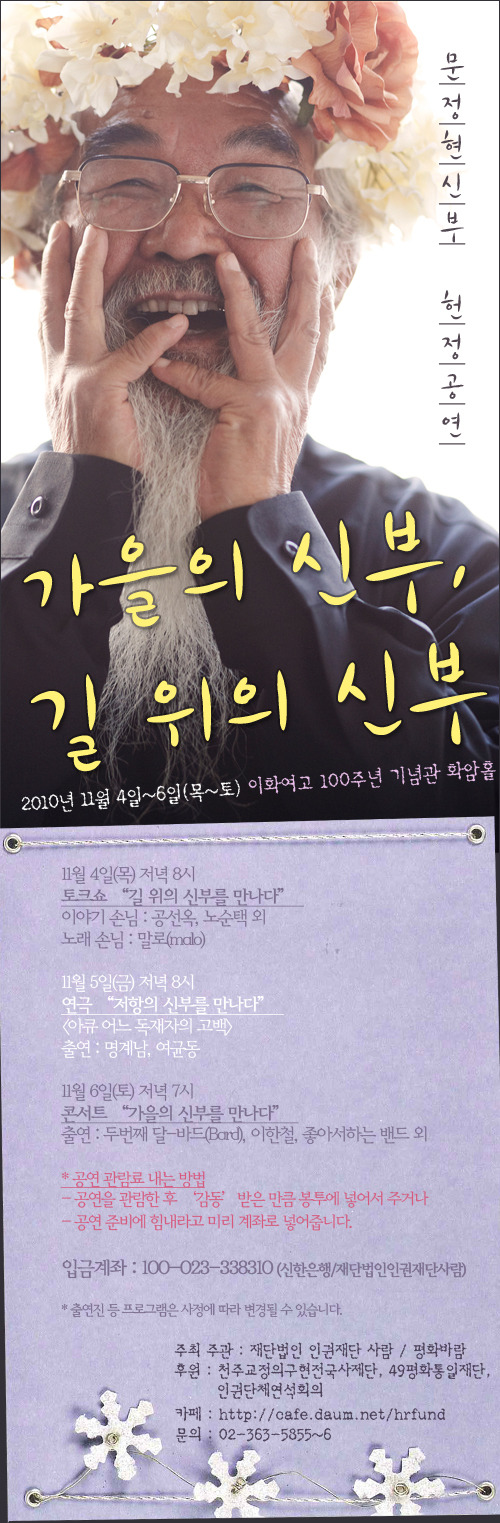 문정현신부 헌정공연
가을의 신부,
길 위의 신부
2010년 11월 4일~6일(목~토) 이화여고 100주년 기념관 화암홀
11월 4일(목) 저녁 8시
토크쇼 “길 위의 신부를 만나다”
이야기 손님 : 공선옥, 노순택 외
노래 손님 : 말로(malo)
11월 5일(금) 저녁 8시
연극 “저항의 신부를 만나다”
<아큐 어느 독재자의 고백>
출연 : 명계남, 여균동
11월 6일(토) 저녁 7시
콘서트 “가을의 신부를 만나다”
출연 : 두번째 달-바드(Bard), 이한철, 좋아서하는 밴드 외
* 공연 관람료 내는 방법
- 공연을 관람한 후 ‘감동’ 받은 만큼 봉투에 넣어서 주거나
- 공연 준비에 힘내라고 미리 계좌로 넣어줍니다.
입금계좌 : 100-023-338310 (신한은행/재단법인인권재단사람)
* 출연진 등 프로그램은 사정에 따라 변경될 수 있습니다.
주최 주관 : 재단법인 인권재단 사람 / 평화바람
후원 : 천주교정의구현전국사제단, 49평화통일재단,
인권단체연석회의
카페 : http://cafe.daum.net/hrfund
문의 : 02-363-5855~6